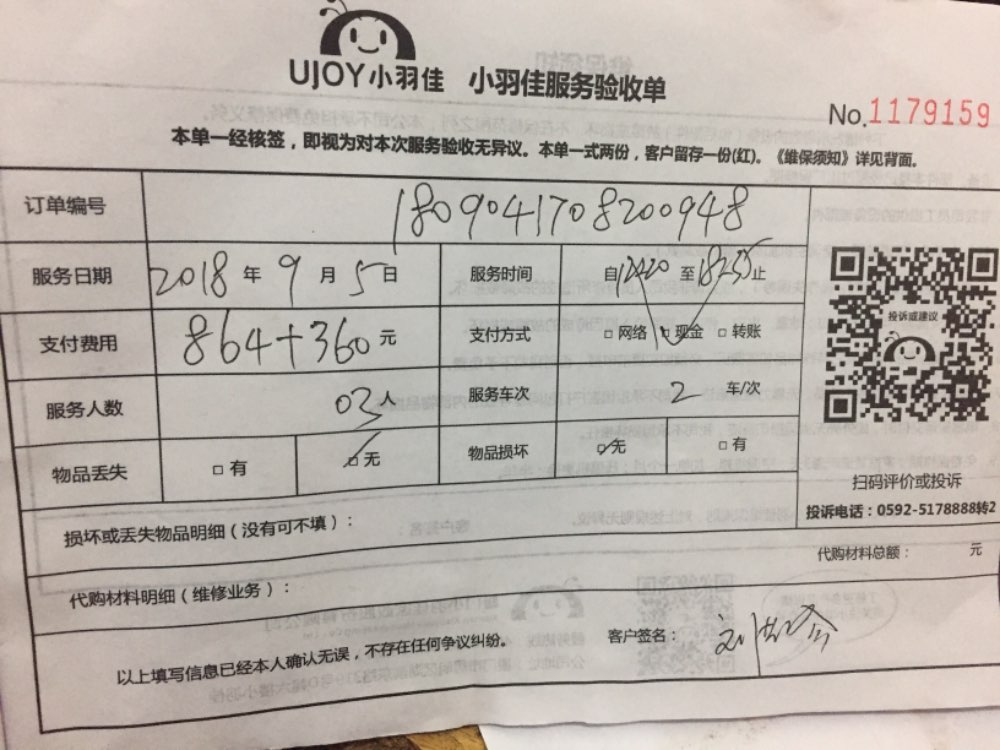 UJOY小羽佳 小羽佳服务验收单
No.1179159
本单一经核签，即视为对本次服务验收无异议。本单一式两份，客户留存一份(红)。《维保须知》详见背面。
订单编号 1809041708200948
服务日期 2018 年 9 月 5 日 服务时间 自 至 止
支付费用 864+360 元 支付方式 □ 网络 □ 现金 □ 转账
服务人数 03人 服务车次 2 车/次
物品丢失 □ 有 ☑ 无 物品损坏 ☑ 无 □ 有
投诉或建议
扫码评价或投诉
投诉电话：0592-5178888转2
损坏或丢失物品明细（没有可不填）：
代购材料总额： 元
代购材料明细（维修业务）：
以上填写信息已经本人确认无误，不存在任何争议纠纷。 客户签名：